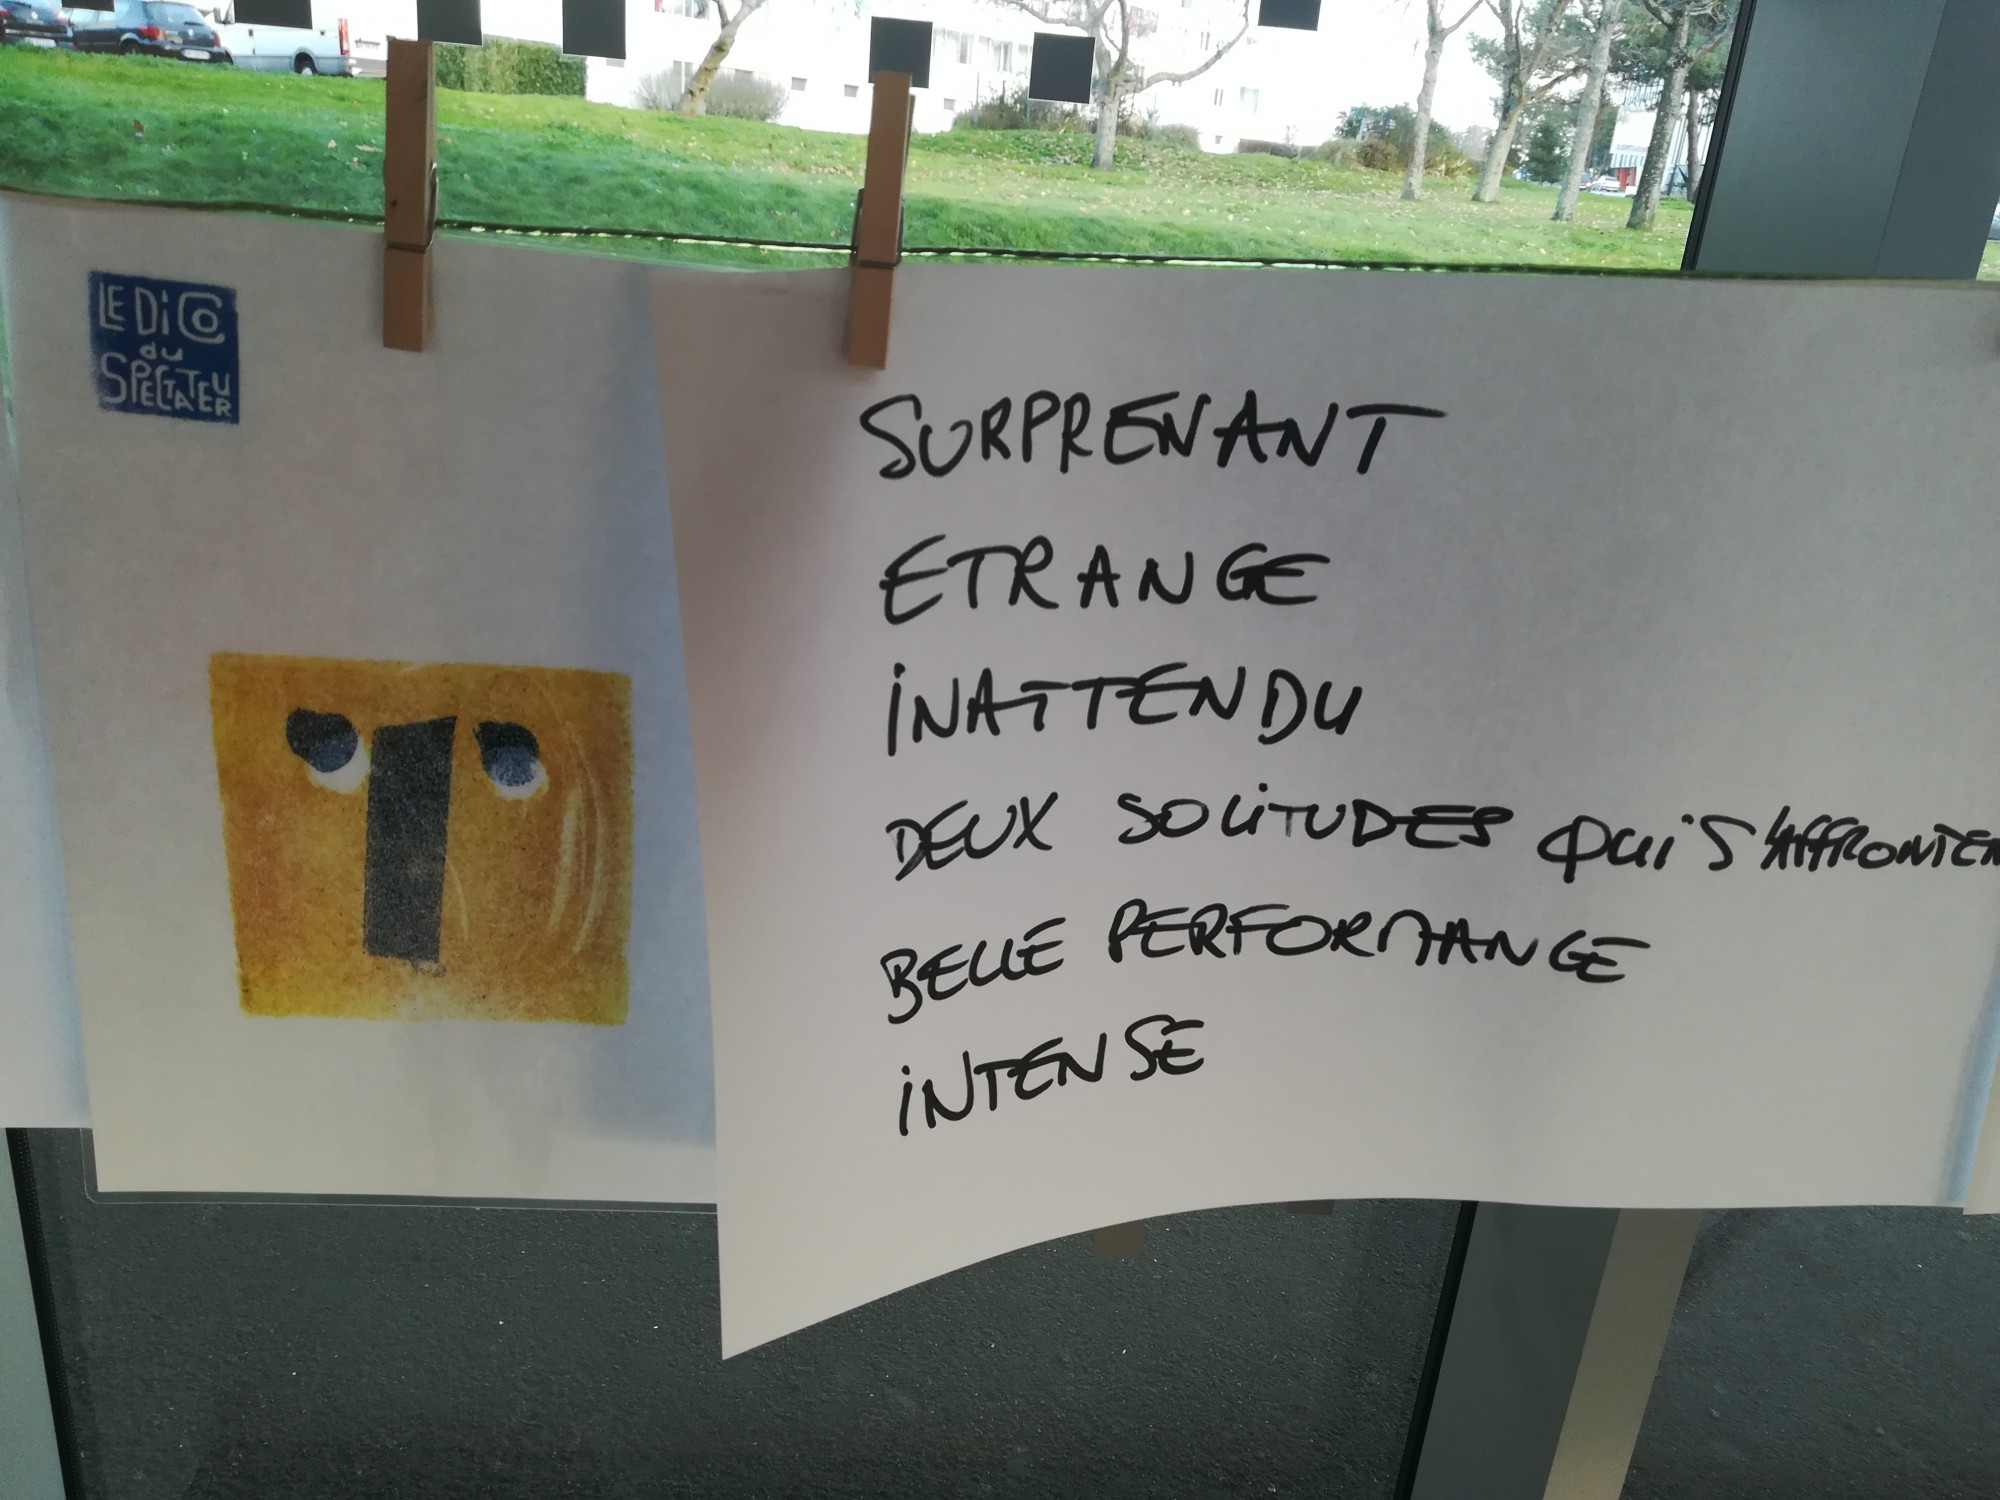 LE DiCO
du
SPECTATEUR
SURPRENANT
ETRANGE
iNATTENDU
DEUX SOLiTUDES QUi S'AFFRONTEN
BELLE PERFORMANCE
iNTENSE